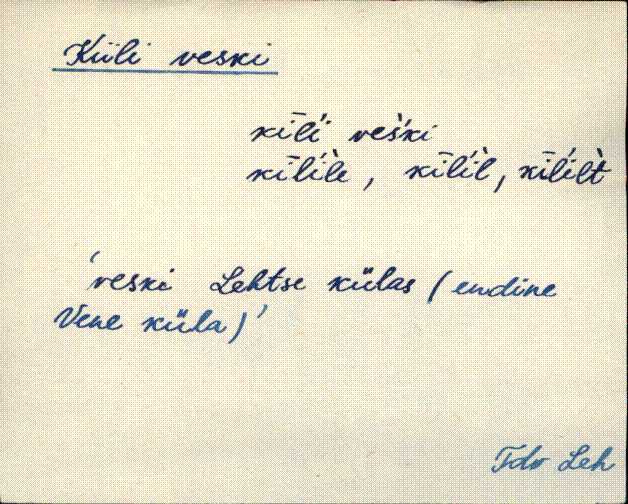 Kiili veski
kīĺi veški
kīĺile, kīĺil, kīĺilt
'veski Lehtse külas (endine
Vene küla)'
Tdv Leh